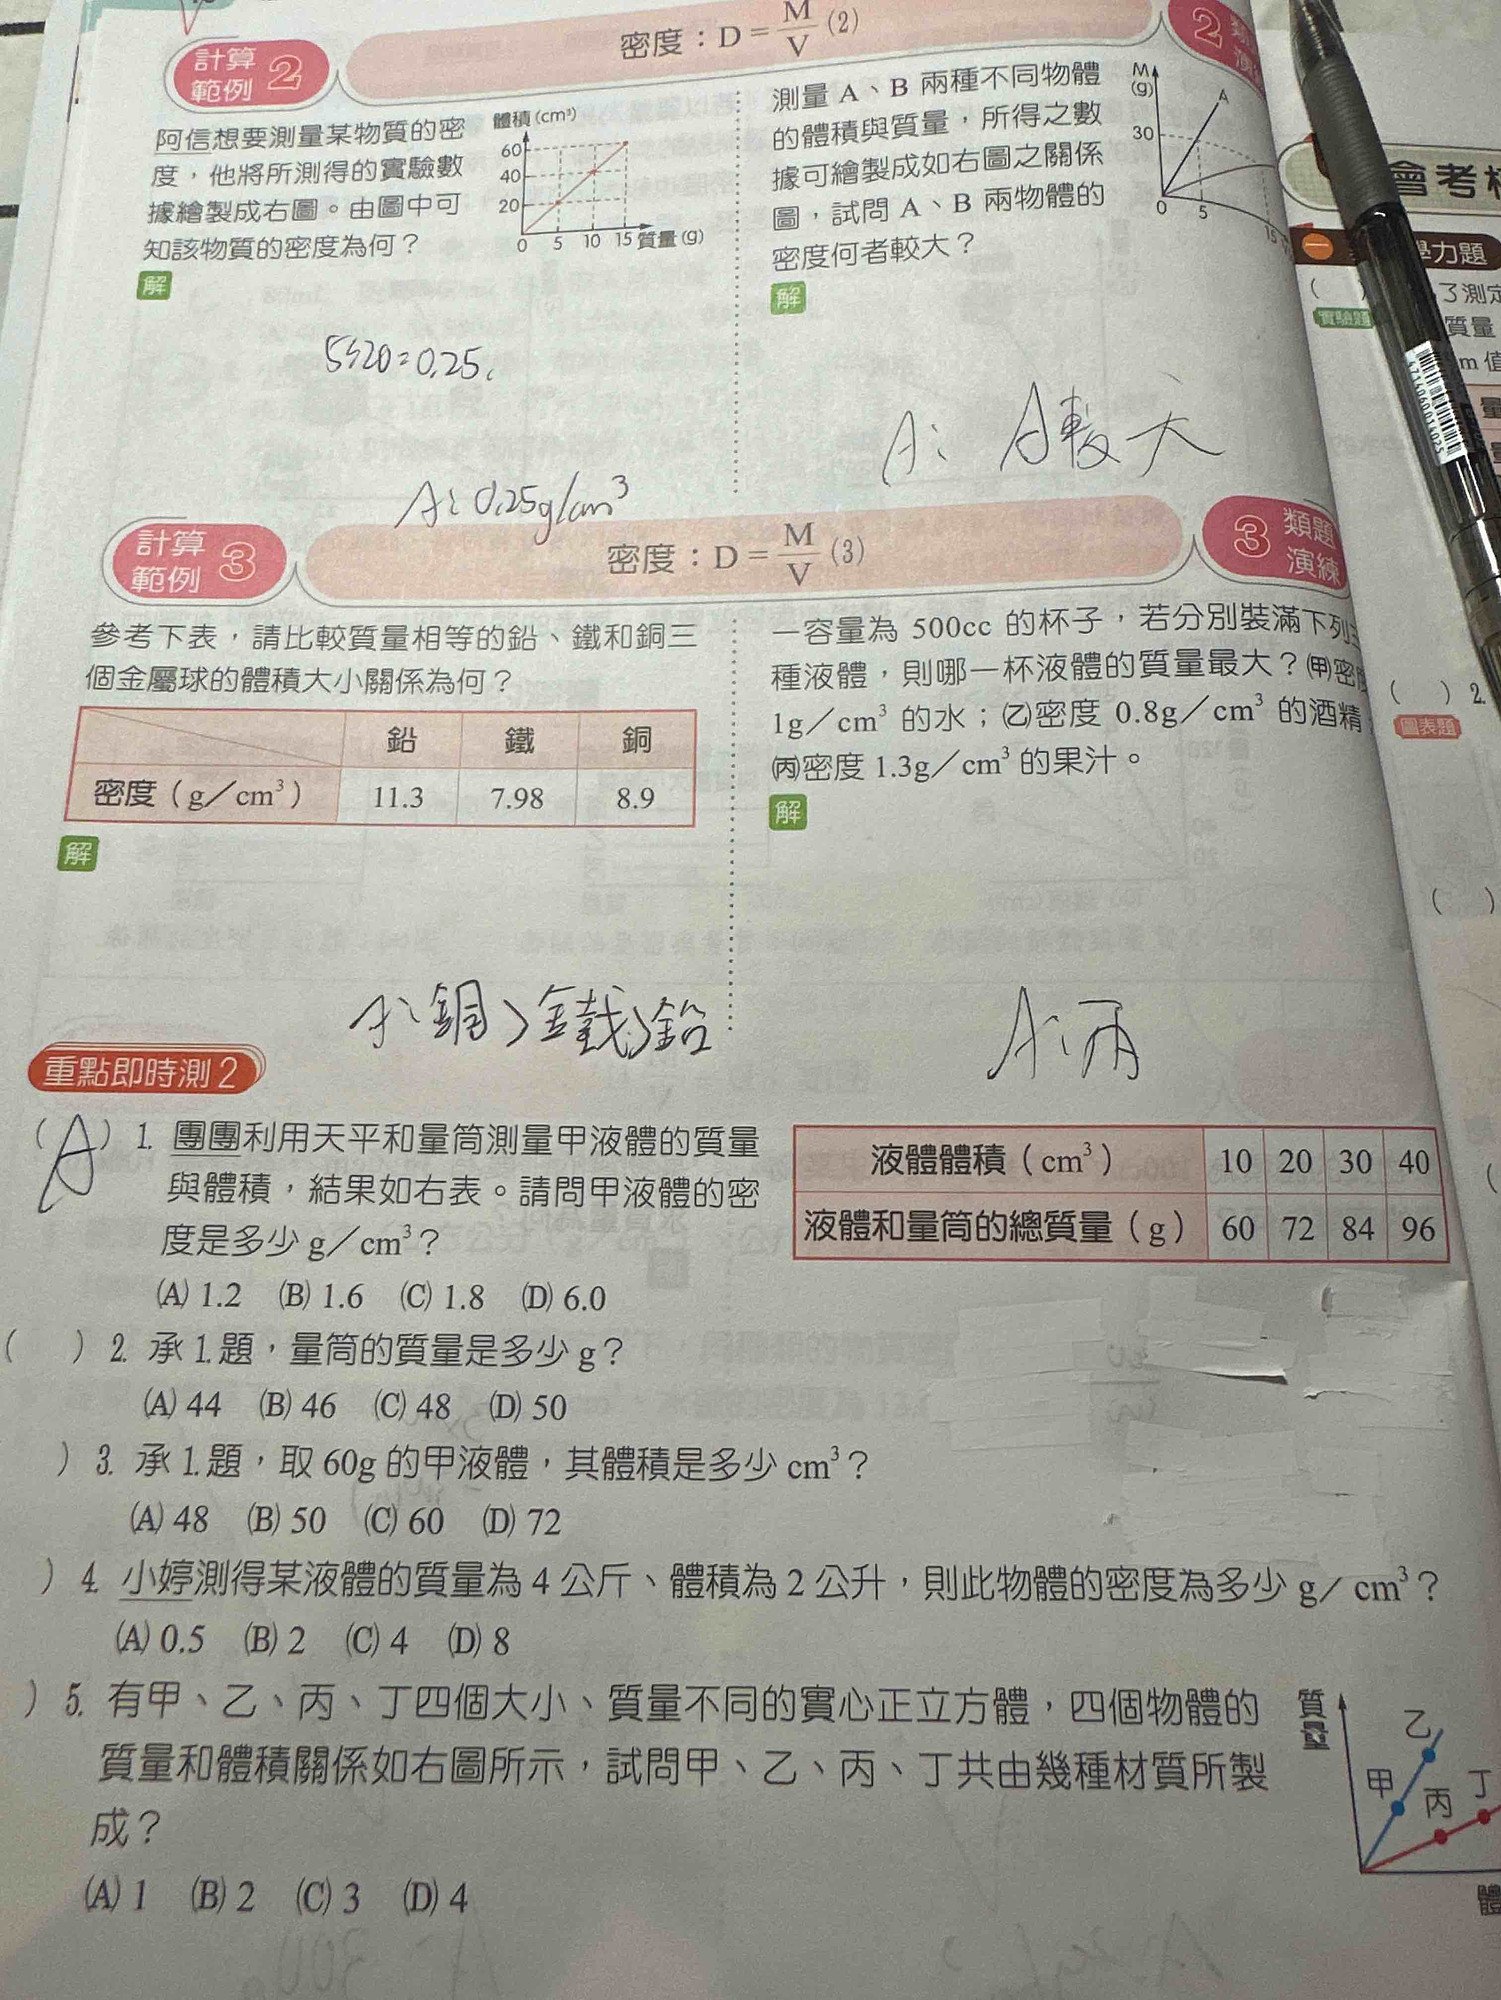 計算
範例 2
密度：D = M/V (2)
2
阿信想要測量某物質的密
度，他將所測得的實驗數
據繪製成右圖。由圖中可
知該物質的密度為何？
體積(cm³)
60
40
20
0 5 10 15 質量(g)
解
5÷20=0.25
A: 0.25g/cm³
測量 A、B 兩種不同物體
的體積與質量，所得之數
據可繪製成如右圖之關係
圖，試問 A、B 兩物體的
密度何者較大？
M
(g)
A
30
0 5 15
解
A: A較大
計算
範例 3
密度：D = M/V (3)
3 類題
演練
參考下表，請比較質量相等的鉛、鐵和銅三
個金屬球的體積大小關係為何？
鉛 鐵 銅
密度（g／cm³） 11.3 7.98 8.9
解
A: 銅>鐵>鉛
一容量為 500cc 的杯子，若分別裝滿下列
種液體，則哪一杯液體的質量最大？(甲)密
1g／cm³ 的水；(乙)密度 0.8g／cm³ 的酒精
(丙)密度 1.3g／cm³ 的果汁。
解
A: 丙
重點即時測 2
( A ) 1. 團團利用天平和量筒測量甲液體的質量
與體積，結果如右表。請問甲液體的密
度是多少 g／cm³？
(A) 1.2 (B) 1.6 (C) 1.8 (D) 6.0
液體體積（cm³） 10 20 30 40
液體和量筒的總質量（g） 60 72 84 96
( ) 2. 承 1.題，量筒的質量是多少 g？
(A) 44 (B) 46 (C) 48 (D) 50
) 3. 承 1.題，取 60g 的甲液體，其體積是多少 cm³？
(A) 48 (B) 50 (C) 60 (D) 72
) 4. 小婷測得某液體的質量為 4 公斤、體積為 2 公升，則此物體的密度為多少 g／cm³？
(A) 0.5 (B) 2 (C) 4 (D) 8
) 5. 有甲、乙、丙、丁四個大小、質量不同的實心正立方體，四個物體的
質量和體積關係如右圖所示，試問甲、乙、丙、丁共由幾種材質所製
成？
(A) 1 (B) 2 (C) 3 (D) 4
質量
乙
甲 丙 丁
體
會考
一
學力題
( )
了測定
實驗題
質量
m 值
量
( ) 2.
圖表題
( )